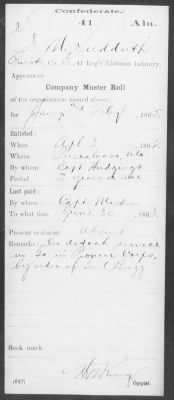 Confederate.
41 Ala.
J M Sudduth
Pvt, Co. , 41 Reg't Alabama Infantry.
Appears on
Company Muster Roll
of the organization named above,
for Jany & Feby , 1863.
Enlisted:
When Apl 2 , 186
Where Tuscaloosa, Ala
By whom Capt
Period 3 years or war
Last paid:
By whom Capt
To what time June 30 , 186
Present or absent Absent
Remarks: On detach service
in Pioneer Corps
by order of Genl Bragg
Book mark:
(647) Copyist.